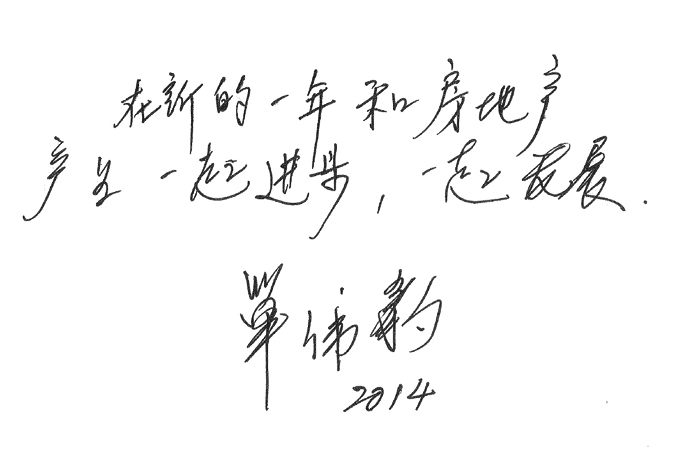 在新的一年和房地产
产业一起进步，一起发展.
单伟豹
2014